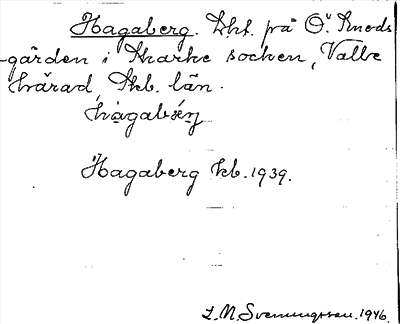 Hagaberg. Lht. på Ö. Kneds
-gården i Kharke socken, Valle
härad, Skb. län.
hàgabǽrj
Hagaberg kb. 1939.
L. M. Svenungsson. 1946.